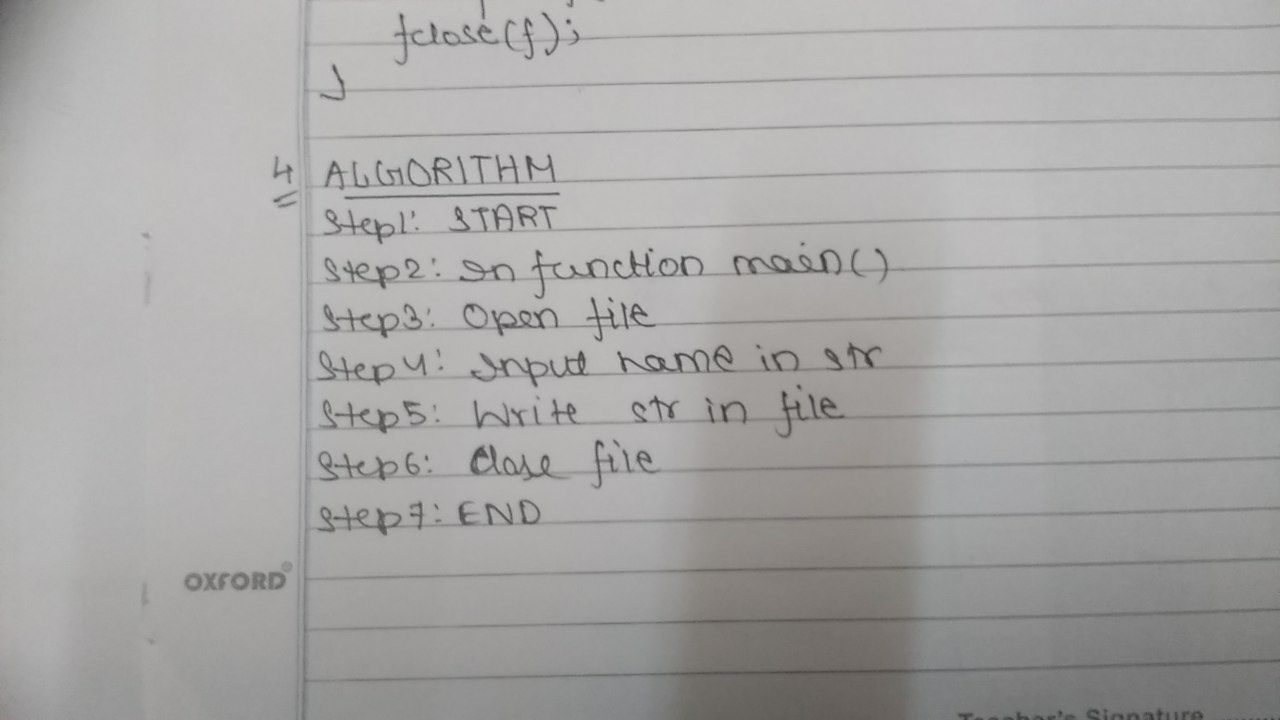 fclose(f);
}
4 ALGORITHM
Step1: START
Step2: In function main()
Step3: Open file
Step4: Input name in str
Step5: Write str in file
Step6: Close file
Step7: END
OXFORD®
Teacher's Signature